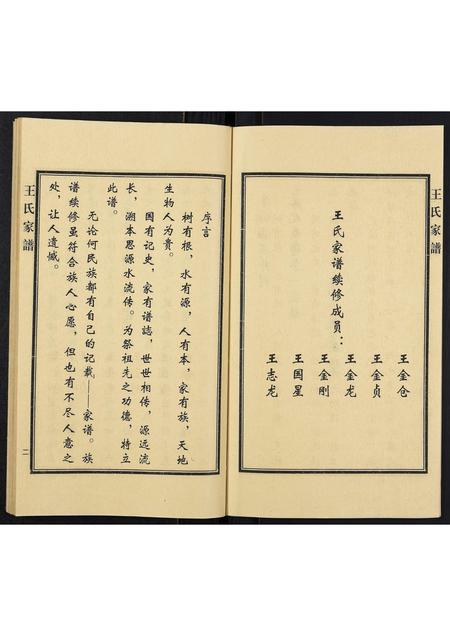 王氏家譜
王氏家谱续修成员：
王金仓
王金贞
王金龙
王金刚
王国星
王志龙
序言
树有根，水有源，人有本，家有族，天地
生物人为贵。
国有记史，家有谱誌，世世相传，源远流
长，溯本思源水流传。为祭祖先之功德，特立
此谱。
无论何民族都有自己的记载——家谱。族
谱续修虽符合族人心愿，但也有不尽人意之
处，让人遗憾。
王氏家譜
二